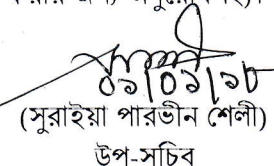 ০১/০১/১৮
(সুরাইয়া পারভীন শেলী)
উপ-সচিব